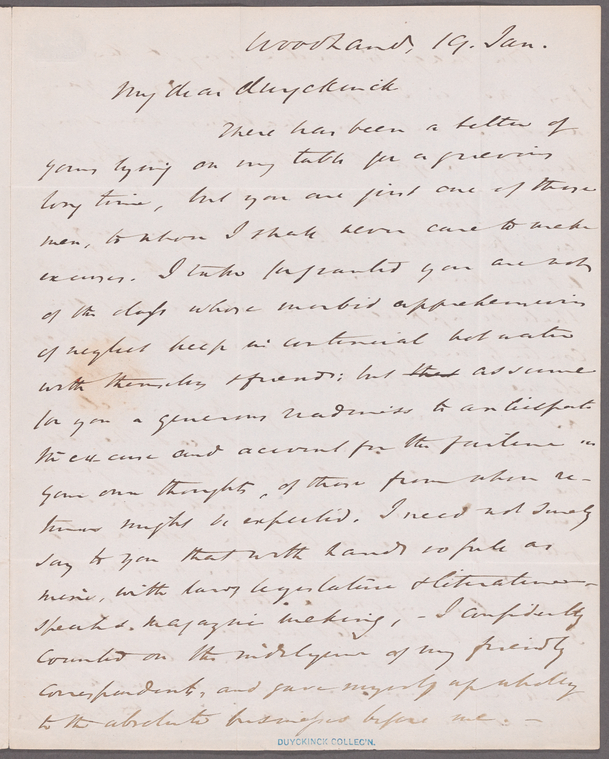 Woodland, 19. Jan.
My dear Duyckinck
There has been a letter of
yours lying on my table for a grievous
long time, but you are just one of those
men, to whom I shall never care to make
excuses. I take for granted you are not
of the class whose morbid apprehensions
of neglect keep in continual hot water
with themselves & friends; but assume
for you a generous readiness to anticipate
the excuse and account for the in
your own thoughts, of those from whom re-
turns might be expected. I need not surely
say to you that with hands so full as
mine, with law, legislature & literature –
speech & magazine making, – I confidently
counted on the indulgence of my friendly
correspondents, and gave myself up wholly
to the absolute businesses before me. –
DUYCKINCK COLLEC'N.